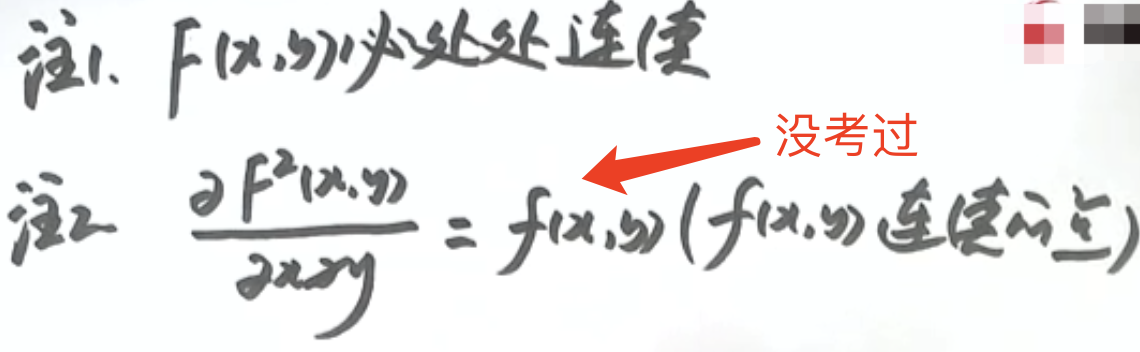 注1. F(x,y)必处处连续
没考过
注2 ∂F²(x,y)/∂x∂y = f(x,y)(f(x,y)连续的点)